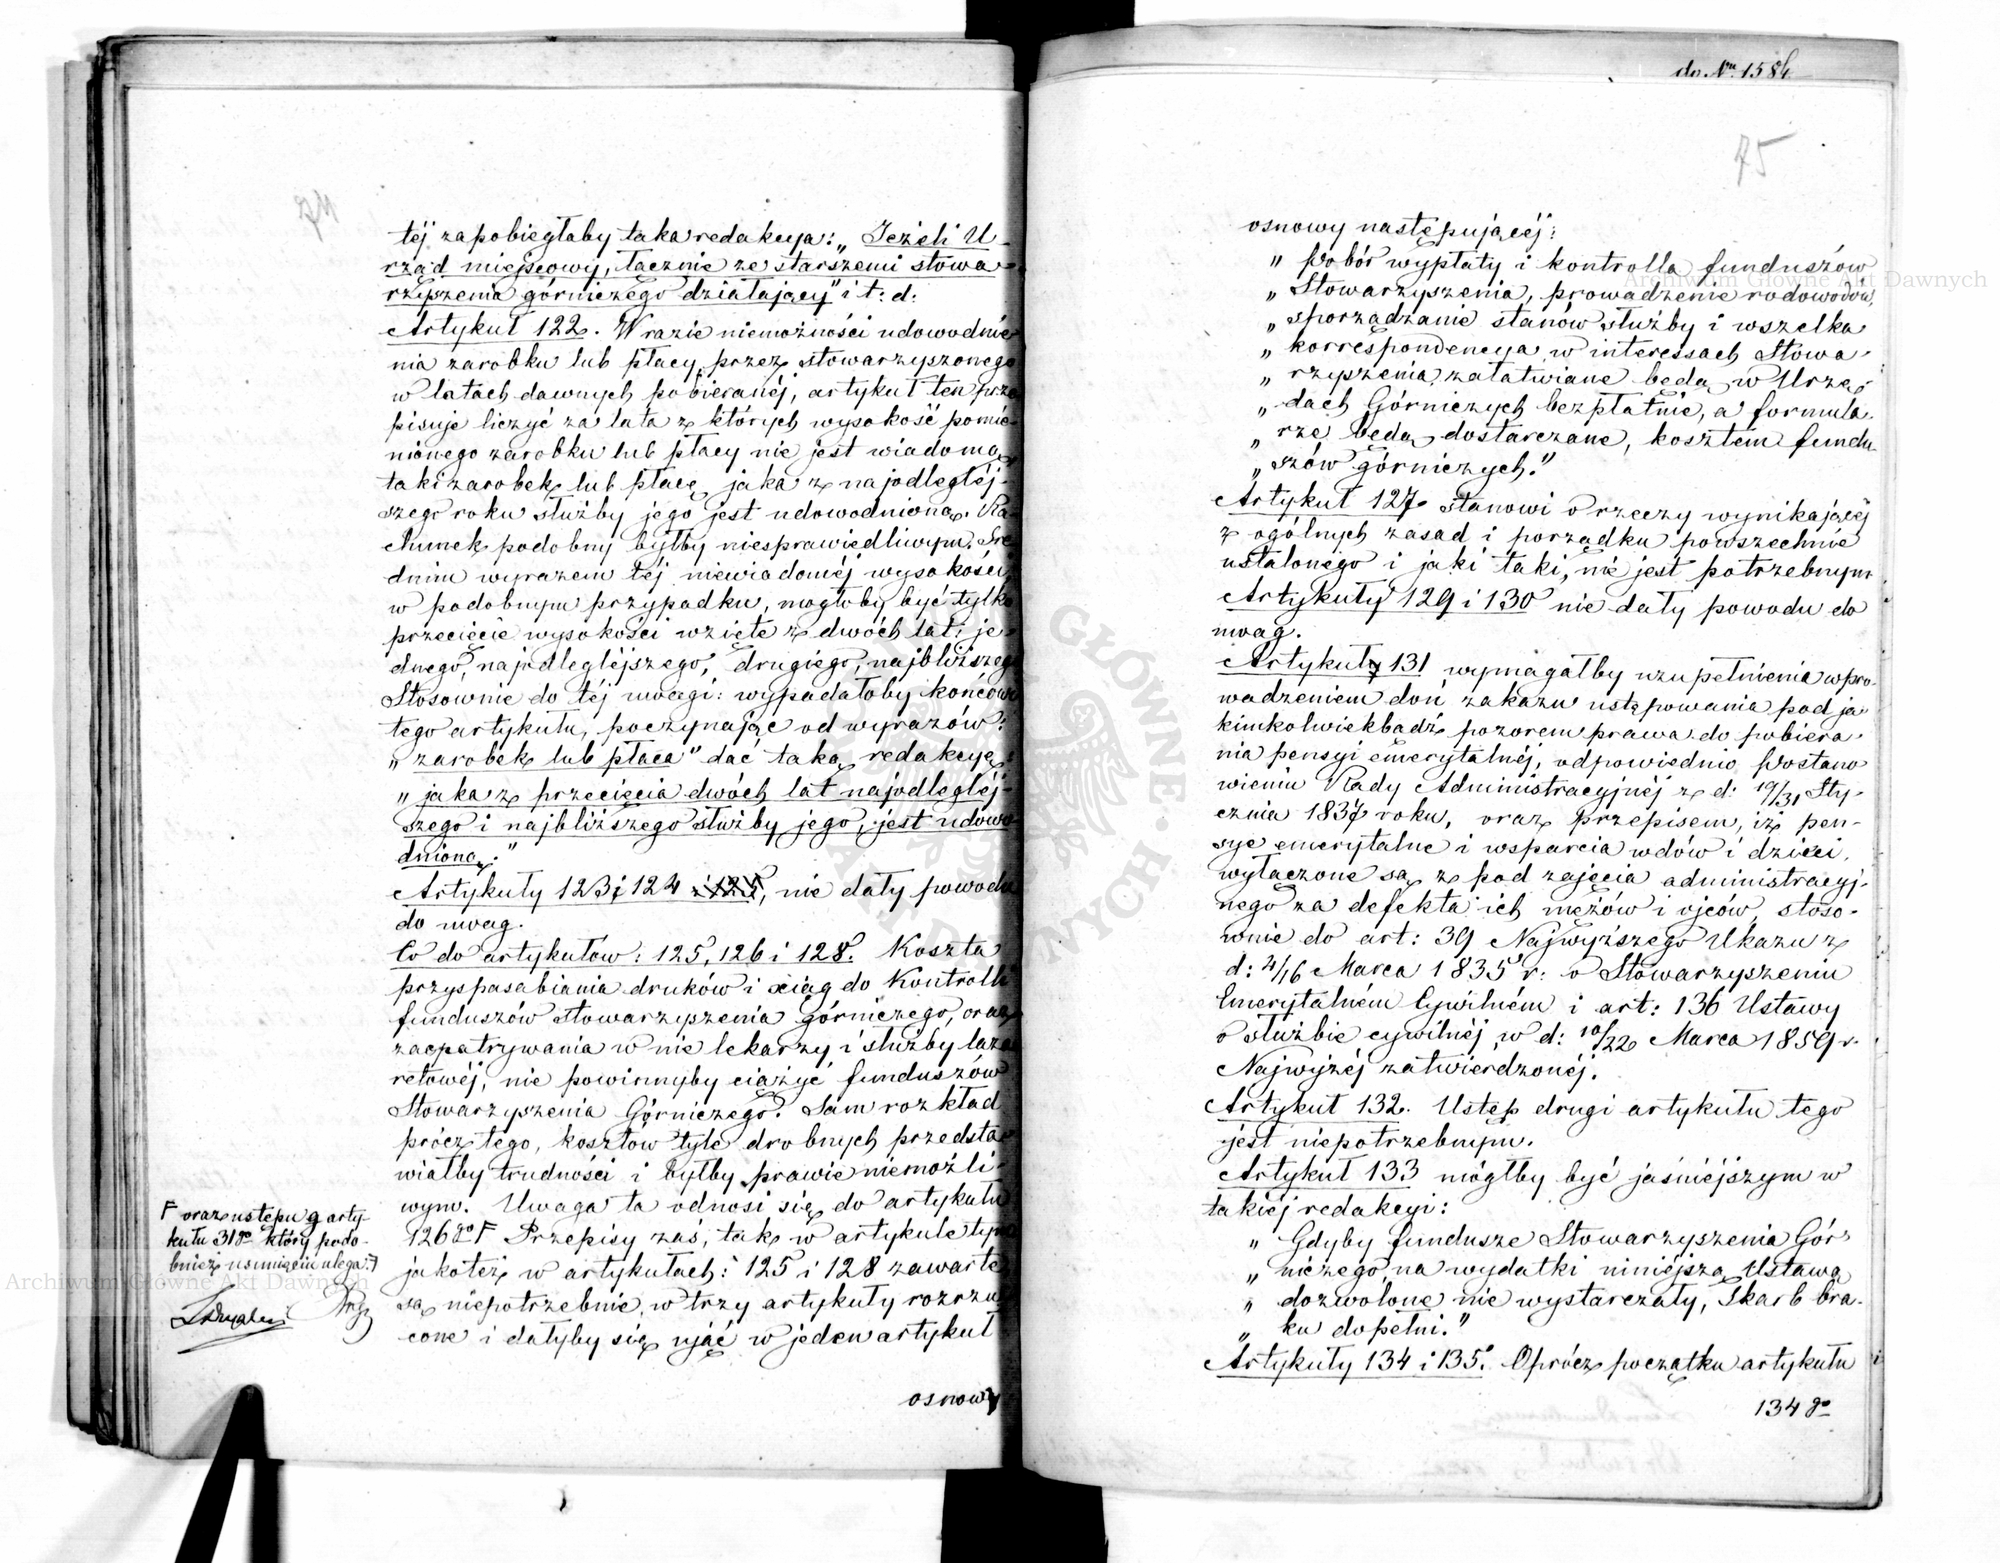 74
téj zapobiegłaby taka redakcya: „Jeżeli U-
rząd miejscowy, łącznie ze starszemi stowa-
rzyszenia górniczego działający" i t: d:
Artykuł 122. W razie niemożności udowodnie
nia zarobku lub płacy, przez stowarzyszonego
w latach dawnych pobieranéj, artykuł ten prze
pisuje liczyć za lata z których wysokość pomie-
nionego zarobku lub płacy nie jest wiadomą,
taki zarobek lub płacę, jaka z najodległéj-
szego roku służby jego jest udowodnioną. Ra-
chunek podobny byłby niesprawiedliwym. Śre
dnim wyrazem téj niewiadoméj wysokości,
w podobnym przypadku, mogłoby być tylko
przecięcie wysokości wzięte z dwóch lat: je-
dnego, najodległéjszego, drugiego, najbliższego
Stosownie do téj uwagi: wypadałoby końcowi
tego artykułu, poczynając od wyrazów:
„zarobek lub płaca" dać taką redakcyę:
„jaka z przecięcia dwóch lat najodległéj-
szego i najbliższego służby jego, jest udowo
dnioną."
Artykuły 123 i 124 i 125, nie dały powodu
do uwag.
Co do artykułów: 125, 126 i 128. Koszta
przysposabiania druków i xiąg do Kontrolli
funduszów stowarzyszenia górniczego, oraz
zaopatrywania w nie lekarzy i służby laza
retowéj, nie powinnyby ciążyć funduszów
Stowarzyszenia Górniczego. Sam rozkład
prócz tego, kosztów tyle drobnych przedsta
wiałby trudności i byłby prawie niemożli-
wym. Uwaga ta odnosi się do artykułu
126go F Przepisy zaś, tak w artykule tym
jakoteż w artykułach: 125 i 128 zawarte
są niepotrzebnie w trzy artykuły rozrzu
cone i dałyby się ująć w jeden artykuł
osnowy
F oraz ustępu g arty-
kułu 31go który podo-
bnież usunięciu ulega.
do Nru 1584
75
osnowy następującéj:
„ Pobór wypłaty i kontrolla funduszów
„ Stowarzyszenia, prowadzenie rodowodów,
„ sporządzanie stanów służby i wszelka
„ korrespondencya w interessach Stowa-
„ rzyszenia załatwiane będą w Urzę-
„ dach Górniczych bezpłatnie, a formula-
„ rze będą dostarczane, kosztem fundu-
„ szów górniczych."
Artykuł 127 stanowi o rzeczy wynikającéj
z ogólnych zasad i porządku powszechnie
ustalonego i jaki taki, nie jest potrzebnym
Artykuły 129 i 130 nie dały powodu do
uwag.
Artykuły 131 wymagałby uzupełnienia wpro-
wadzeniem doń zakazu ustępowania pod ja-
kimkolwiekbądź pozorem prawa do pobiera-
nia pensyi emerytalnéj, odpowiednio Postano
wieniu Rady Administracyjnéj z d: 19/31 Sty-
cznia 1837 roku, oraz przepisem, iż pen-
sye emerytalne i wsparcia wdów i dzieci,
wyłączone są z pod zajęcia administracyj-
nego za defekta ich mężów i ojców, stoso-
wnie do art: 39 Najwyższego Ukazu z
d: 4/16 Marca 1835 r: o Stowarzyszeniu
Emerytalném Cywilném i art: 136 Ustawy
o służbie cywilnéj w d: 10/22 Marca 1859 r.
Najwyżéj zatwierdzonéj.
Artykuł 132. Ustęp drugi artykułu tego
jest niepotrzebnym.
Artykuł 133 mógłby być jaśniejszym w
takiéj redakcyi:
„ Gdyby fundusze Stowarzyszenia Gór-
„ niczego na wydatki niniejszą Ustawą
„ dozwolone nie wystarczały, Skarb bra-
„ ku dopełni."
Artykuły 134 i 135. Oprócz początku artykułu
134go
Archiwum Główne Akt Dawnych
Archiwum Główne Akt Dawnych